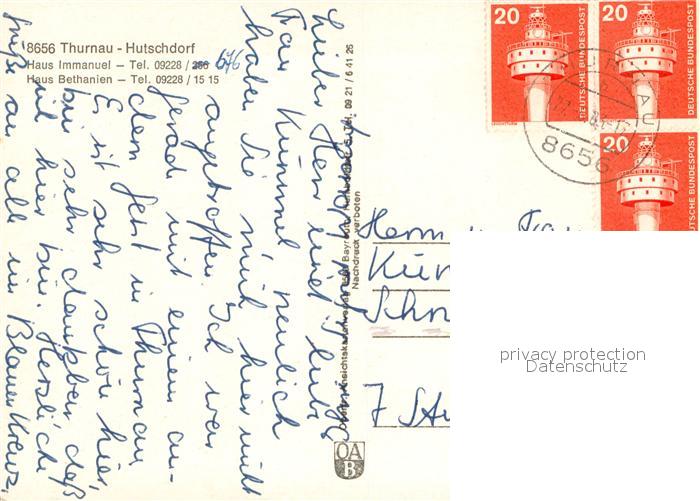 8656 Thurnau - Hutschdorf
Haus Immanuel — Tel. 09228 / 286 676
Haus Bethanien — Tel. 09228 / 15 15
Lieber Herr und liebe
Frau Kümmel, neulich
haben Sie mich hier nicht
angetroffen. Ich war
gerad mit einem an-
dern Gast in Thurnau.
Es ist sehr schön hier,
bin sehr dankbar, daß
ich hier bin. Herzliche
Grüße an alle im Blauen Kreuz,
Ansichtskartenverlag Bayreuth Tel. 09 21 / 6 41 26
Nachdruck verboten
OA
B
20
DEUTSCHE BUNDESPOST
20
DEUTSCHE BUNDESPOST
20
DEUTSCHE BUNDESPOST
8656
Herrn u. Frau
Küm
Schn
7 Stu
privacy protection
Datenschutz